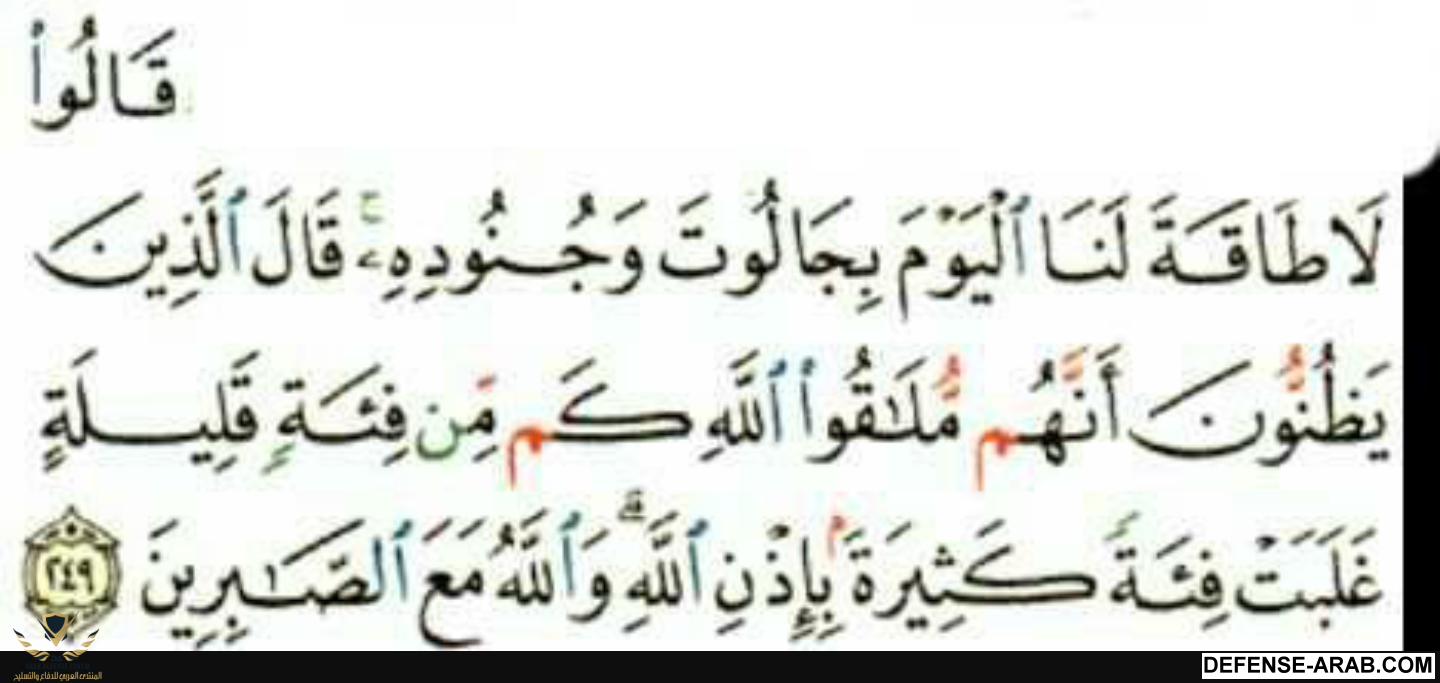 قَالُوا۟
لَا طَاقَةَ لَنَا ٱلْيَوْمَ بِجَالُوتَ وَجُنُودِهِۦۚ قَالَ ٱلَّذِينَ
يَظُنُّونَ أَنَّهُم مُّلَـٰقُوا۟ ٱللَّهِ كَم مِّن فِئَةٍ قَلِيلَةٍ
غَلَبَتْ فِئَةً كَثِيرَةَۢ بِإِذْنِ ٱللَّهِۗ وَٱللَّهُ مَعَ ٱلصَّـٰبِرِينَ ٢٤٩
المنتدى العربي للدفاع والتسليح
DEFENSE-ARAB.COM